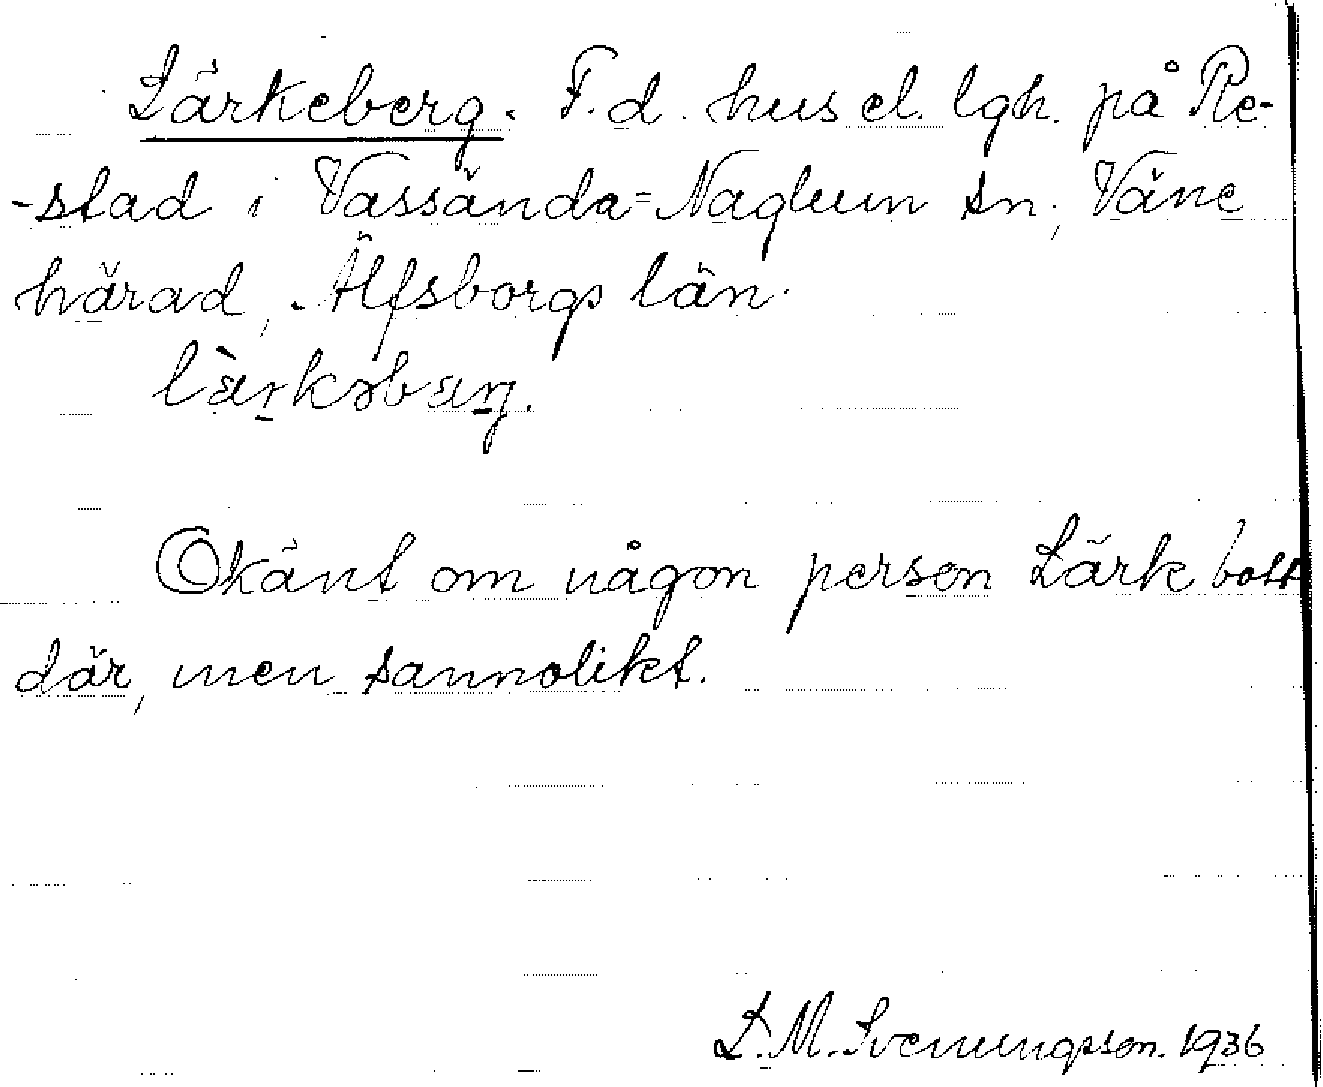 Lärkeberg. F.d. hus el. lgh. på Re-
-stad i Vassända=Naglum sn, Väne
härad, Älfsborgs län.
làrkəbærj.
Okänt om någon person Lärk bott
där, men sannolikt.
L.M. Svenungsson. 1936